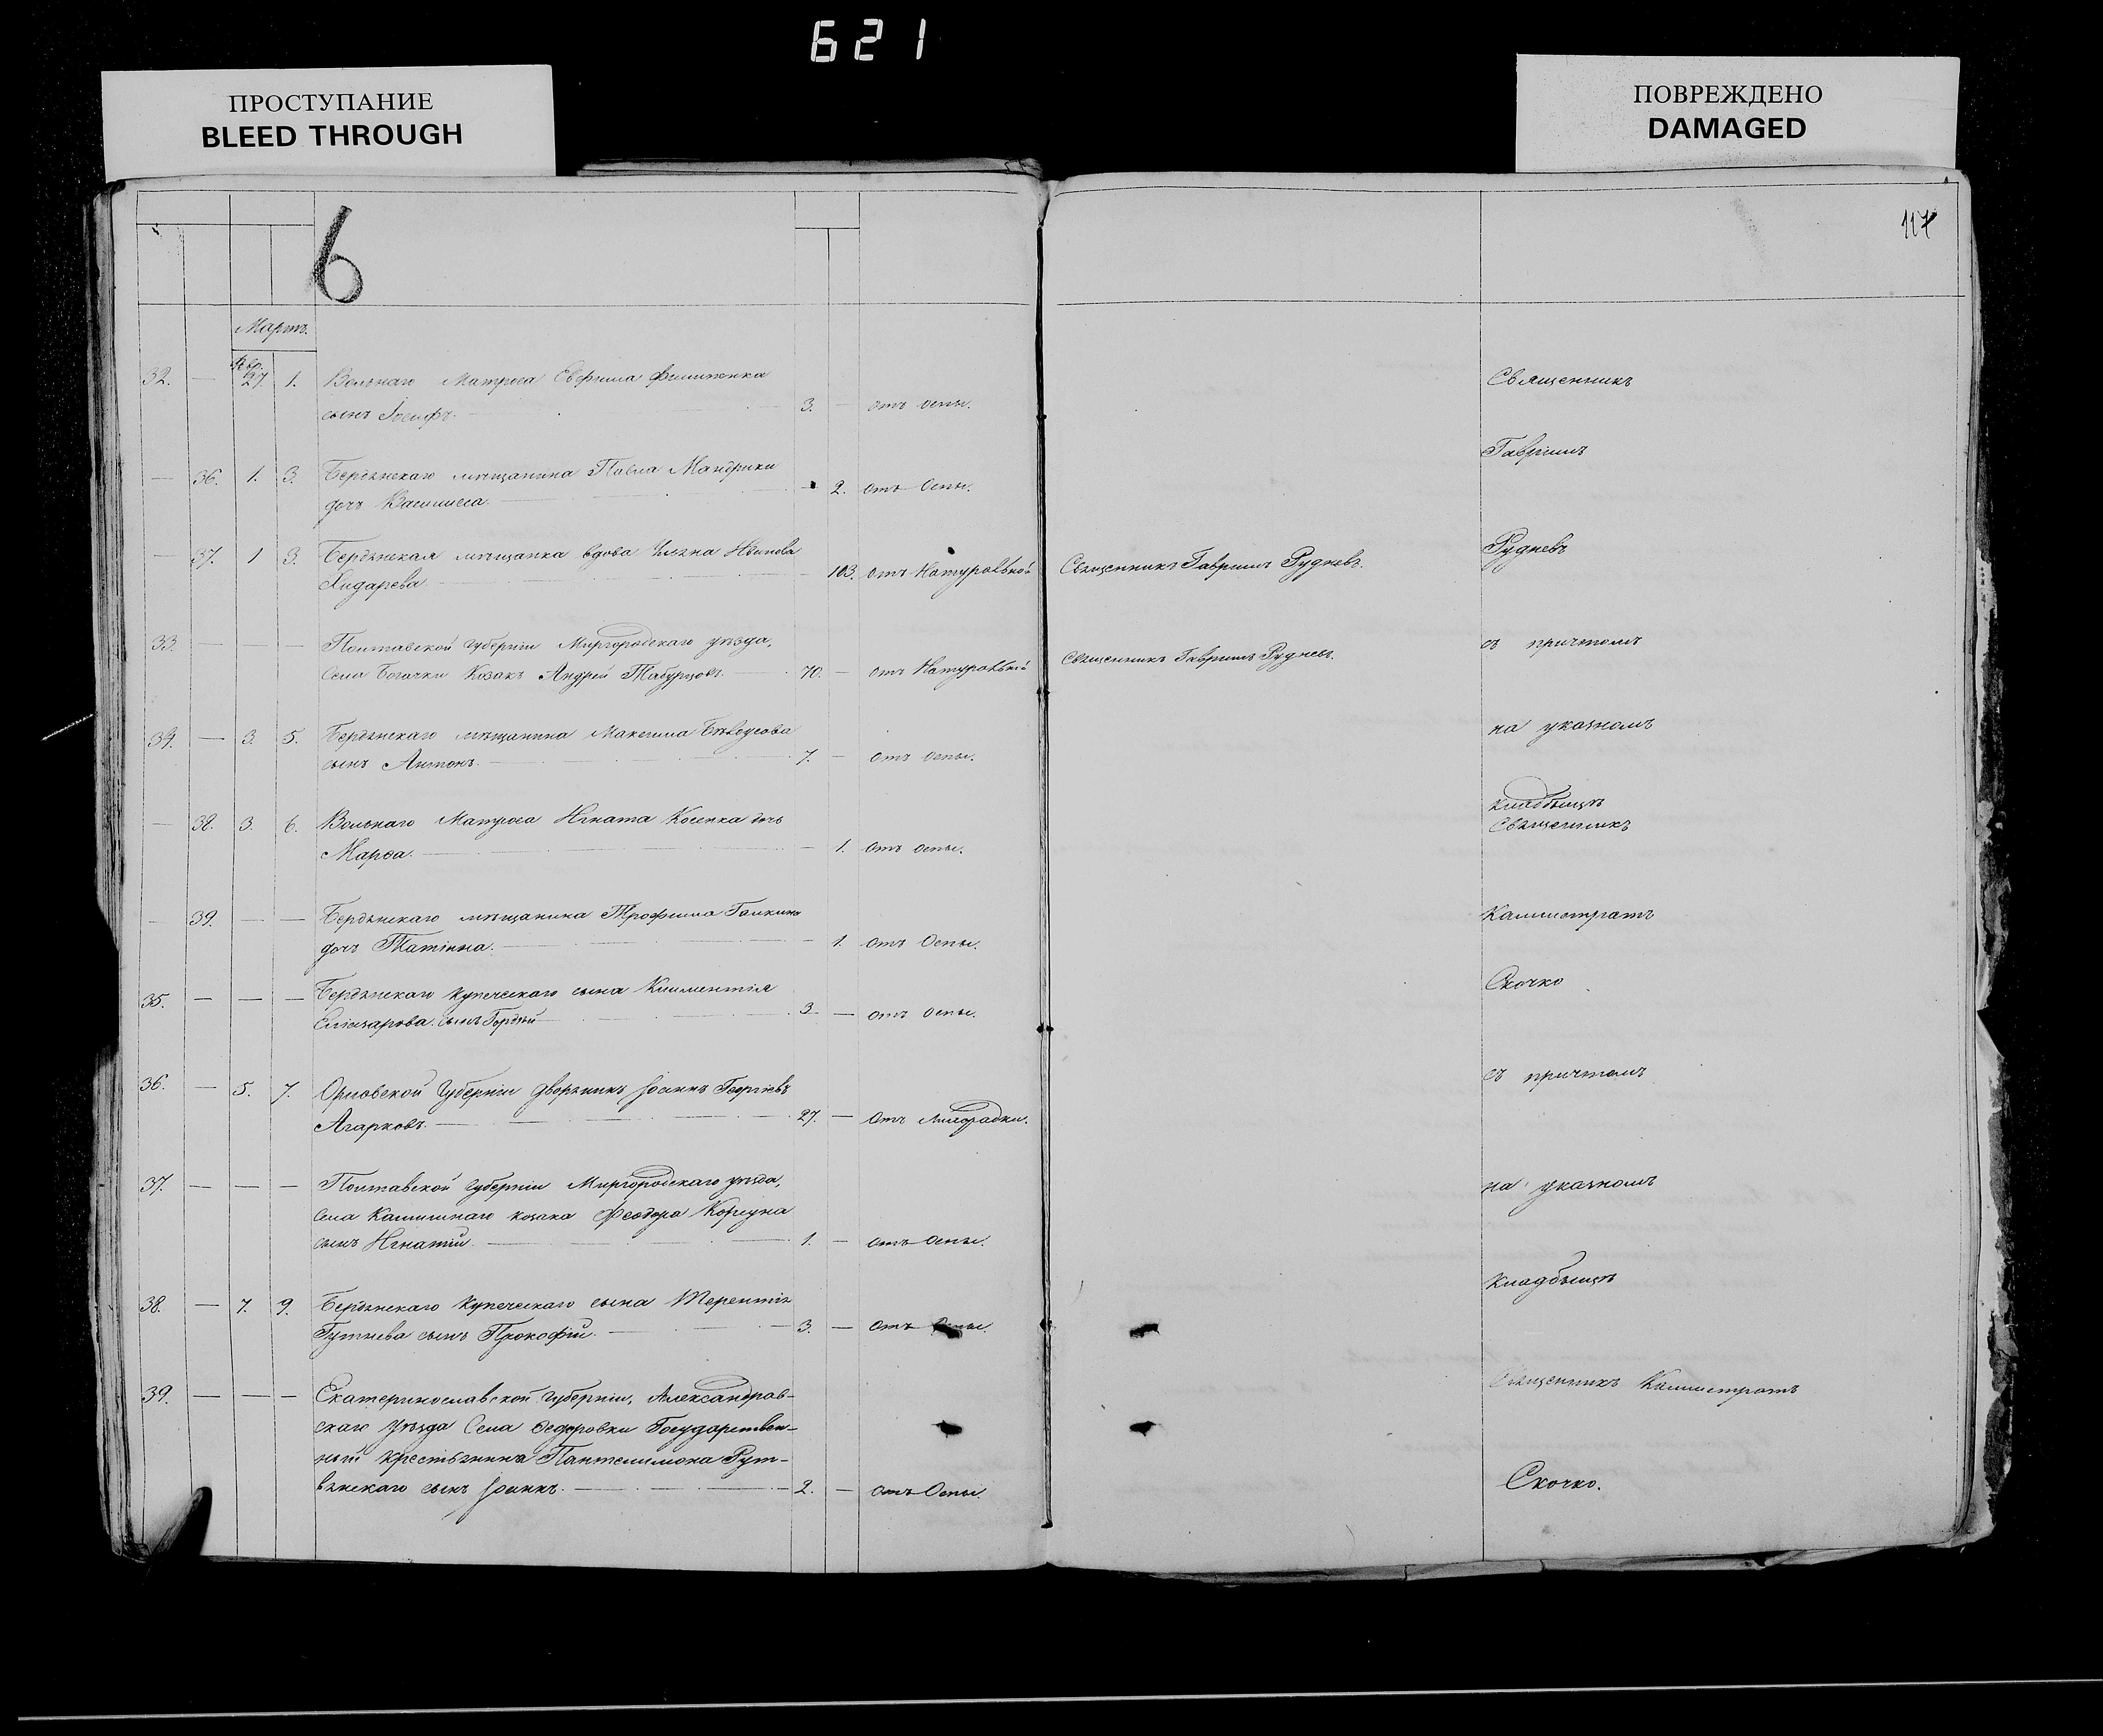 621
ПРОСТУПАНИЕ
BLEED THROUGH
ПОВРЕЖДЕНО
DAMAGED
6
117
Мартъ.
32. — 27. 1. Вольнаго Матроса
сынъ Іосифъ. 3. — отъ оспы.
Священникъ
Гавріилъ
— 36. 1. 3. Бердянскаго мѣщанина Павла Мандрики
дочь Василисса. — 2. отъ Оспы.
— 37. 1 3. Бердянская мѣщанка вдова
103. отъ Натуральной Священникъ Гавріилъ Рудневъ.
Рудневъ
33. — — — Полтавской губерніи Миргородскаго уѣзда,
Села Богачки Козакъ Андрей 70. — отъ Натуральной Священникъ Гавріилъ Рудневъ.
съ причтомъ
34. — 3. 5. Бердянскаго мѣщанина Максима
сынъ Антонъ. 7. — отъ оспы.
на указномъ
кладбищѣ
— 38. 3. 6. Вольнаго Матроса Игната Косенка дочь
Марѳа. — 1. отъ оспы.
Священникъ
— 39. — — Бердянскаго мѣщанина Трофима Галкина
дочь Татіана. — 1. отъ Оспы.
Каллистратъ
35. — — — Бердянскаго купеческаго сына Климентія
Елизарова сынъ Гордѣй 3 — отъ оспы.
Скочко
36. — 5. 7. Орловской Губерніи дворянинъ Іоаннъ Георгіевъ
Агарковъ. 27. — отъ Лихорадки.
съ причтомъ
37. — — — Полтавской губерніи Миргородскаго уѣзда,
села козака Ѳеодора Коргуна
сынъ Игнатій. 1. — отъ Оспы.
на указномъ
кладбищѣ
38. — 7. 9. Бердянскаго Купеческаго сына Терентія
сынъ Прокофій. 3. — отъ Оспы.
39. — — — Екатеринославской губерніи, Александров-
скаго уѣзда Села Ѳедоровки Государствен-
ный крестьянина Пантелимона Рут-
вянскаго сынъ Іоаннъ. 2. — отъ Оспы.
Священникъ Каллистратъ
Скочко.